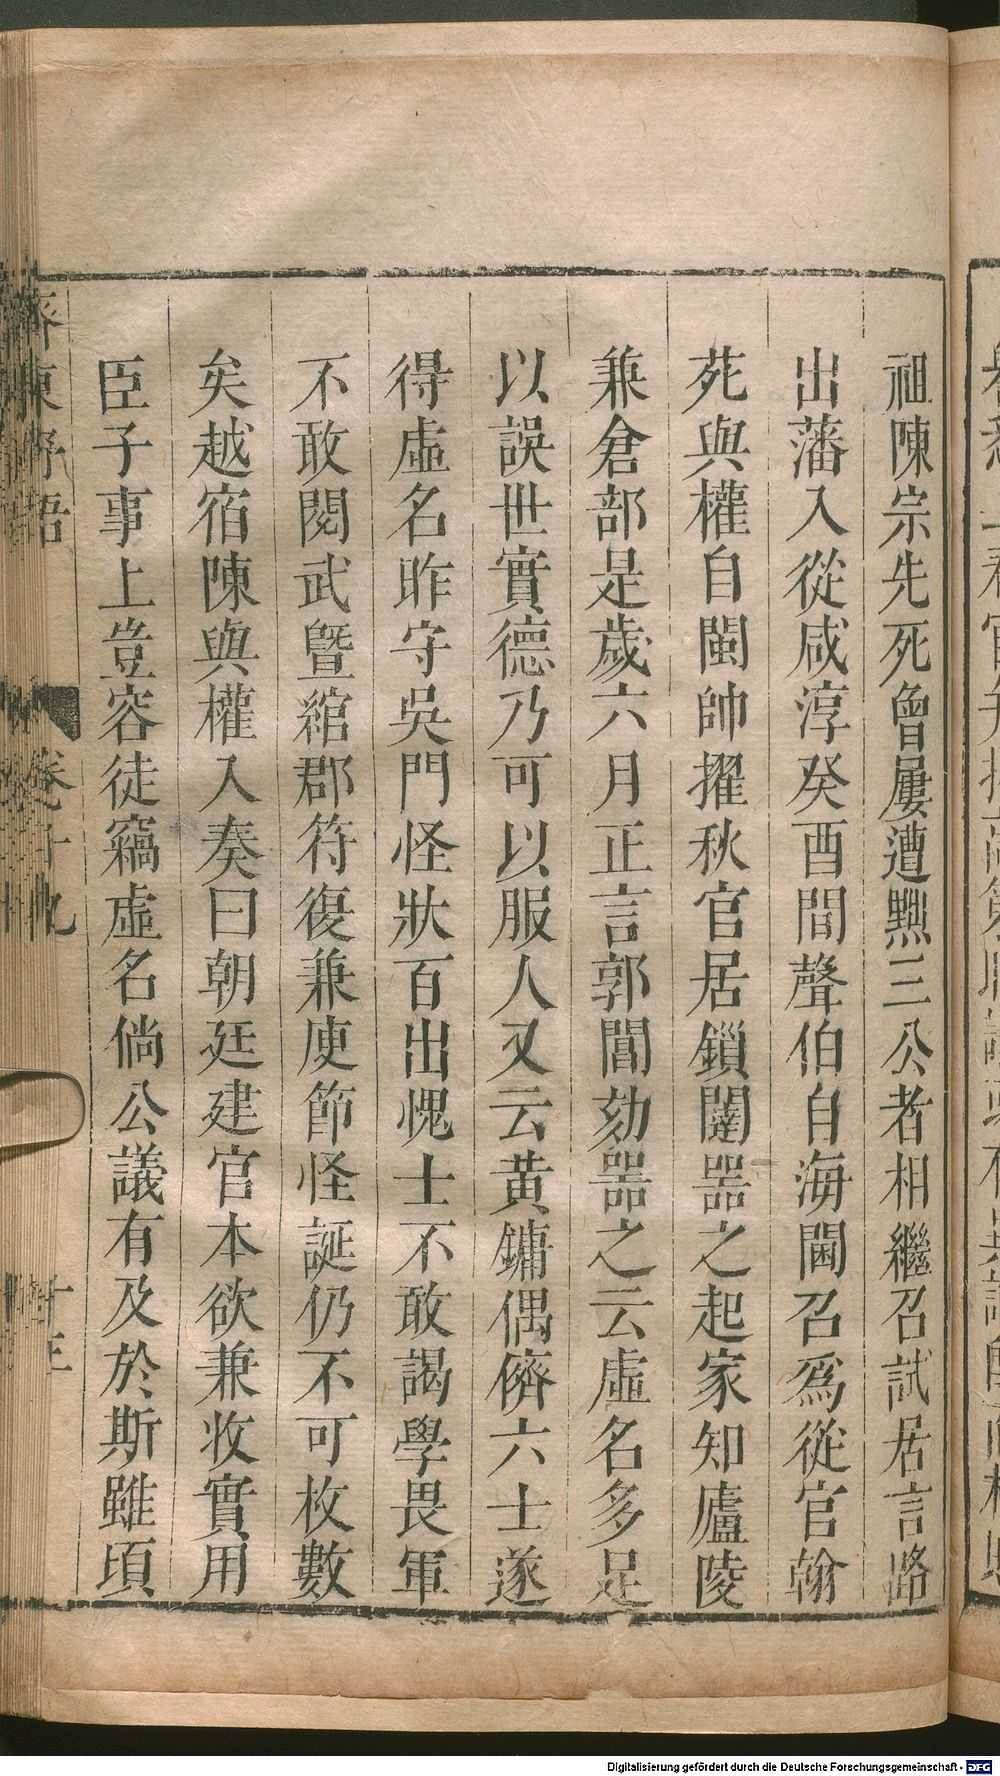 祖陳宗先死曾屢遭黥三公者相繼召試居言路
出藩入從咸淳癸酉間聲伯自海閫召爲從官翰
死與權自閩帥擢秋官居鎖闥器之起家知廬陵
兼倉部是歲六月正言郭閶劾器之云虛名多足
以誤世實德乃可以服人又云黃鏞偶儕六士遂
得虛名昨守吳門怪狀百出愧士不敢謁學畏軍
不敢閱武暨綰郡符復兼庾節怪誕仍不可枚數
矣越宿陳與權入奏曰朝廷建官本欲兼收實用
臣子事上豈容徒竊虛名倘公議有及於斯雖頃
齊東野語
卷十九
十三
Digitalisierung gefördert durch die Deutsche Forschungsgemeinschaft - DFG